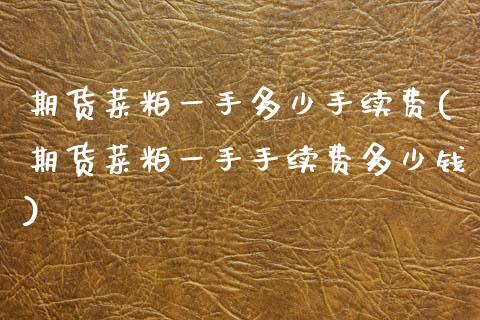 期货菜粕一手多少手续费(
期货菜粕一手手续费多少钱
)